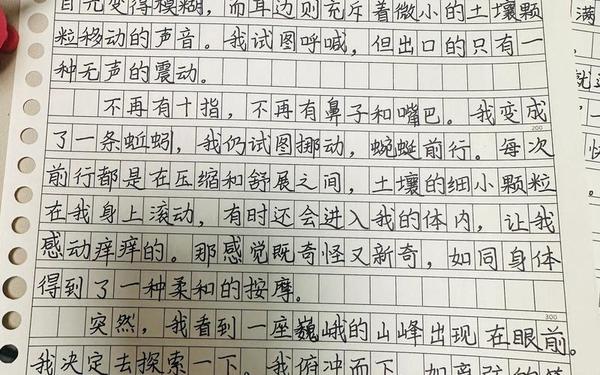 目光变得模糊，而耳边则充斥着微小的土壤颗
粒移动的声音。我试图呼喊，但出口的只有一
种无声的震动。
不再有十指，不再有鼻子和嘴巴。我变成
了一条蚯蚓，我仍试图挪动，蜿蜒前行。每次
前行都是在压缩和舒展之间，土壤的细小颗粒
在我身上滚动，有时还会进入我的体内，让我
感动痒痒的。那感觉既奇怪又新奇，如同身体
得到了一种柔和的按摩。
突然，我看到一座巍峨的山峰出现在眼前。
我决定去探索一下。我俯冲而下，如离弦的箭
200
300
满